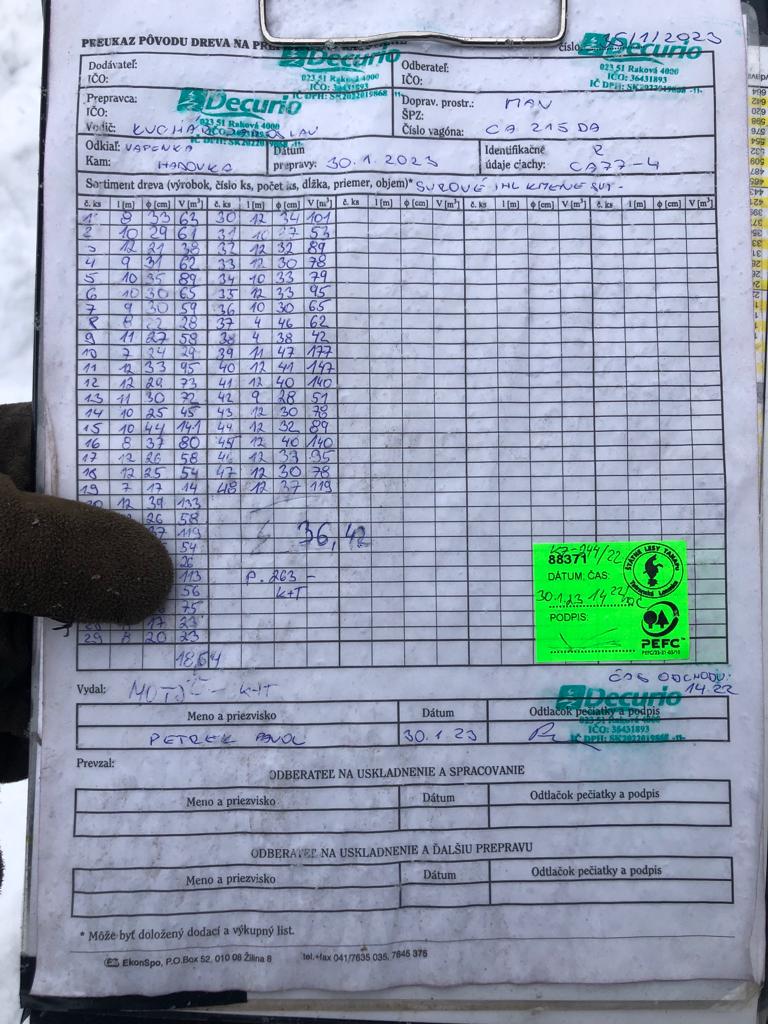 PREUKAZ PÔVODU DREVA NA
číslo 16/1/2023
Decurio
023 51 Raková 4000
IČO: 36431893
IČ DPH: SK2022019868 -11-
Decurio
023 51 Raková 4000
IČO: 36431893
IČ DPH: SK2022019868 -11-
Dodávateľ:
IČO:
Odberateľ:
IČO:
Prepravca:
IČO:
Decurio
023 51 Raková 4000
Vodič:
Doprav. prostr.: MAN
ŠPZ:
Číslo vagóna: CA 215 DA
Odkiaľ: VAPENKA
Kam: HADOVKA
Dátum
prepravy: 30.1.2023
Identifikačné
údaje ciachy: CA77-4
Sortiment dreva (výrobok, číslo ks, počet ks, dĺžka, priemer, objem)* SUROVÉ IHL KMENE
č. ks l [m] ϕ [cm] V [m³] č. ks l [m] ϕ [cm] V [m³] č. ks l [m] ϕ [cm] V [m³] č. ks l [m] ϕ [cm] V [m³] č. ks l [m] ϕ [cm] V [m³]
1 8 33 63 30 12 34 101
2 10 29 61 31 10 27 53
3 12 21 38 32 12 32 89
4 9 31 62 33 12 30 78
5 10 35 89 34 10 33 79
6 10 30 65 35 12 33 95
7 9 30 59 36 10 30 65
8 8 22 28 37 4 46 62
9 11 27 58 38 4 38 42
10 7 24 29 39 11 47 177
11 12 33 95 40 12 41 147
12 12 29 73 41 12 40 140
13 11 30 72 42 9 28 51
14 10 25 45 43 12 30 78
15 10 44 141 44 12 32 89
16 8 37 80 45 12 40 140
17 12 26 58 46 12 33 95
18 12 25 54 47 12 30 78
19 7 17 14 48 12 37 119
20 12 39 133
26 58
37 119
54
26
113
56
75
17 23
29 8 20 23
18,64
36,42
P. 263 -
K+T
88371
DÁTUM, ČAS:
30.1.23 14 22
PODPIS:
ŠTÁTNE LESY TANAPu
PEFC
Vydal:
K+T
ČAS ODCHODU:
14.22
Decurio
023 51 Raková 4000
IČO: 36431893
IČ DPH: SK2022019868 -11-
Meno a priezvisko Dátum Odtlačok pečiatky a podpis
PETREK PAVOL 30.1.23
Prevzal:
ODBERATEĽ NA USKLADNENIE A SPRACOVANIE
Meno a priezvisko Dátum Odtlačok pečiatky a podpis
ODBERATEĽ NA USKLADNENIE A ĎALŠIU PREPRAVU
Meno a priezvisko Dátum Odtlačok pečiatky a podpis
* Môže byť doložený dodací a výkupný list.
EkonSpo, P.O.Box 52, 010 08 Žilina 8 tel.+fax 041/7635 035, 7645 375